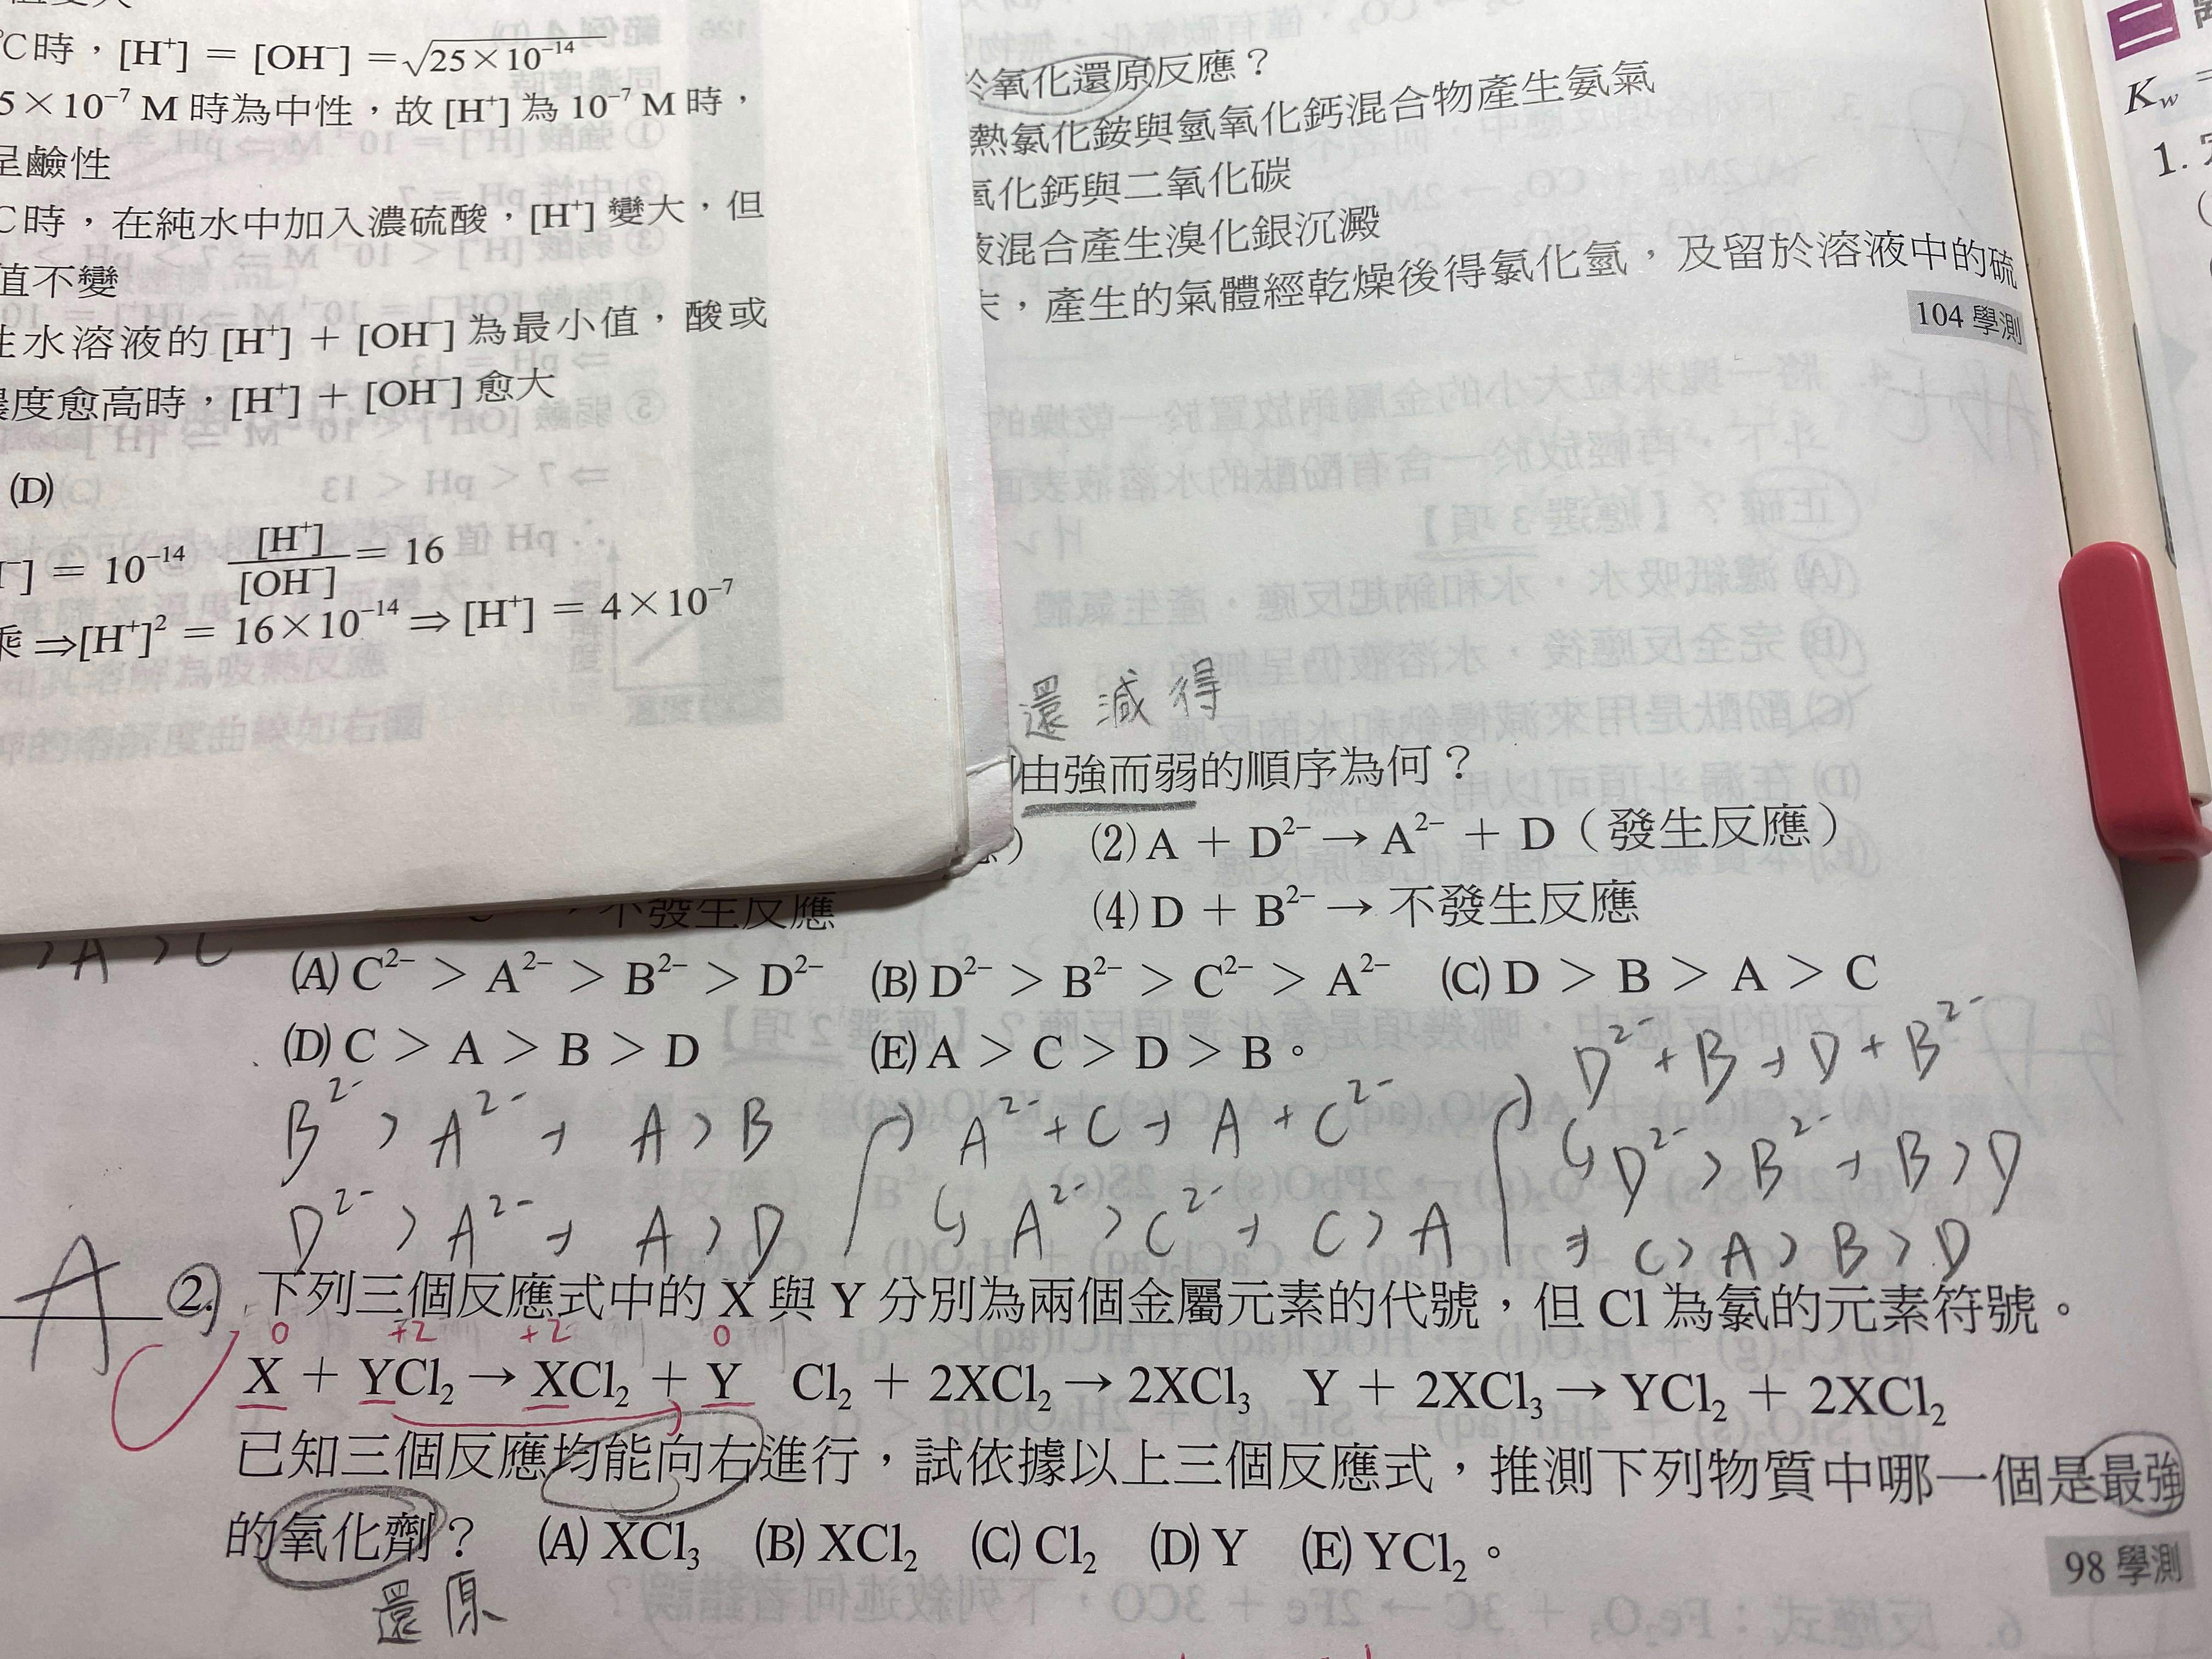 ℃時，[H⁺] = [OH⁻] = √25×10⁻¹⁴
5×10⁻⁷ M 時為中性，故 [H⁺] 為 10⁻⁷ M 時，
呈鹼性
℃時，在純水中加入濃硫酸，[H⁺] 變大，但
值不變
性水溶液的 [H⁺] + [OH⁻] 為最小值，酸或
濃度愈高時，[H⁺] + [OH⁻] 愈大
(D)
⁻] = 10⁻¹⁴ [H⁺]/[OH⁻] = 16
乘 ⇒[H⁺]² = 16×10⁻¹⁴ ⇒ [H⁺] = 4×10⁻⁷
於氧化還原反應？
熱氯化銨與氫氧化鈣混合物產生氨氣
氧化鈣與二氧化碳
液混合產生溴化銀沉澱
末，產生的氣體經乾燥後得氯化氫，及留於溶液中的硫
104 學測
Kw =
1.
還 減 得
由強而弱的順序為何？
(2) A + D²⁻ → A²⁻ + D（發生反應）
不發生反應 (4) D + B²⁻ → 不發生反應
> A > C
(A) C²⁻ > A²⁻ > B²⁻ > D²⁻ (B) D²⁻ > B²⁻ > C²⁻ > A²⁻ (C) D > B > A > C
(D) C > A > B > D (E) A > C > D > B。
D²⁻ + B → D + B²⁻
B²⁻ > A²⁻ → A > B A²⁻ + C → A + C²⁻ ↳ D²⁻ > B²⁻ → B > D
D²⁻ > A²⁻ → A > D ↳ A²⁻ > C²⁻ → C > A ⇒ C > A > B > D
A 2. 下列三個反應式中的 X 與 Y 分別為兩個金屬元素的代號，但 Cl 為氯的元素符號。
0 +2 +2 0
X + YCl₂ → XCl₂ + Y Cl₂ + 2XCl₂ → 2XCl₃ Y + 2XCl₃ → YCl₂ + 2XCl₂
已知三個反應均能向右進行，試依據以上三個反應式，推測下列物質中哪一個是最強
的氧化劑？ (A) XCl₃ (B) XCl₂ (C) Cl₂ (D) Y (E) YCl₂。
98 學測
還原